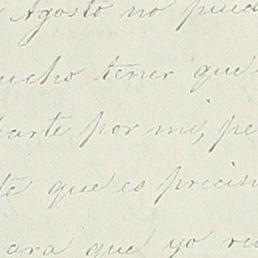 y Agosto no pued
ucho tener que
arte por mi, pe
te que es precis
ara que yo re